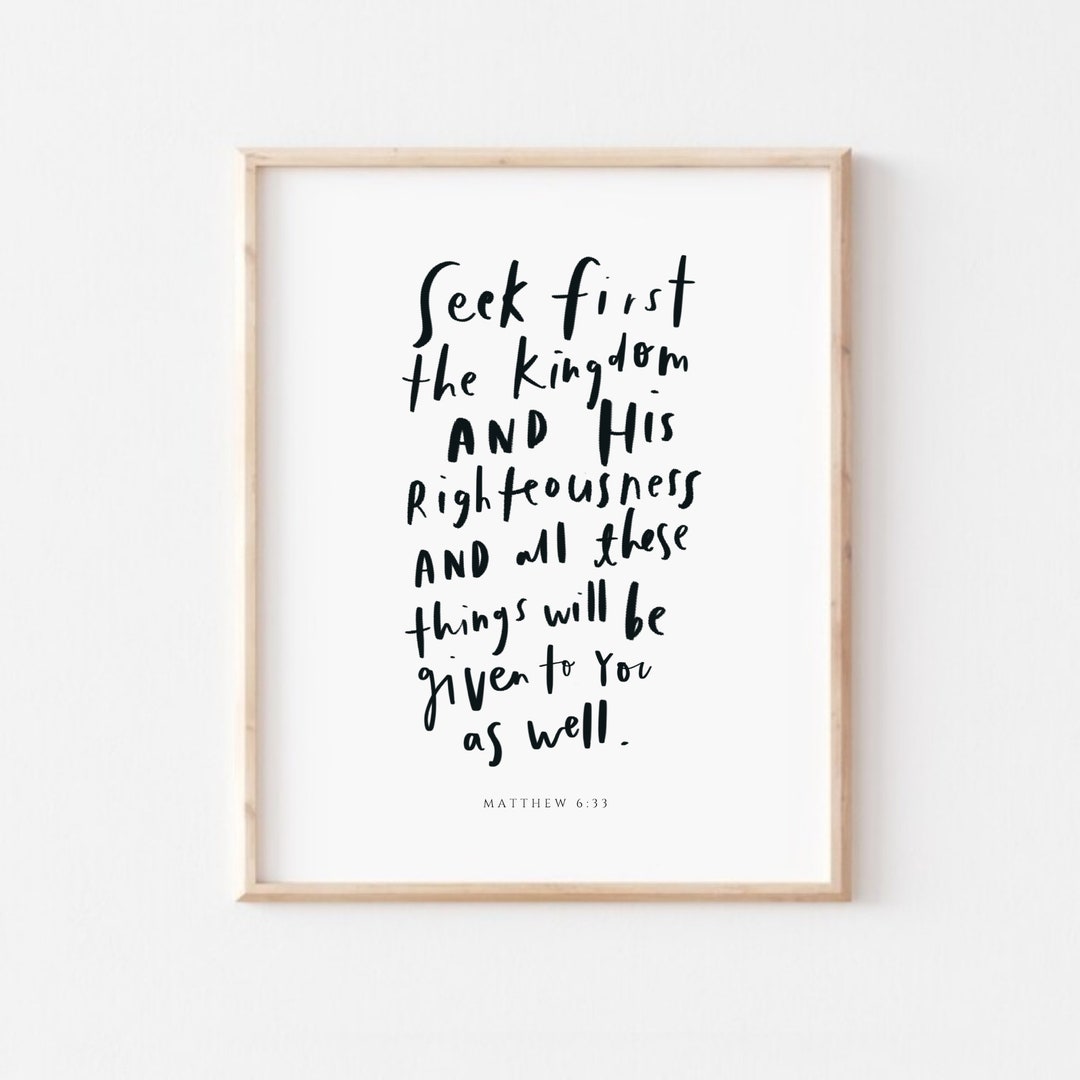 Seek first
the kingdom
AND His
Righteousness
AND all these
things will be
given to You
as well.
MATTHEW 6:33